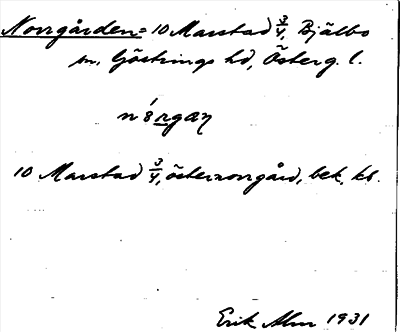 Norrgården = 10 Marstad 3/4, Bjälbo
sn, Göstrings hd, Österg. l.
n 8́rgaɳ
10 Marstad 3/4, östernorrgård, bek. kb.
Erik Alm 1931